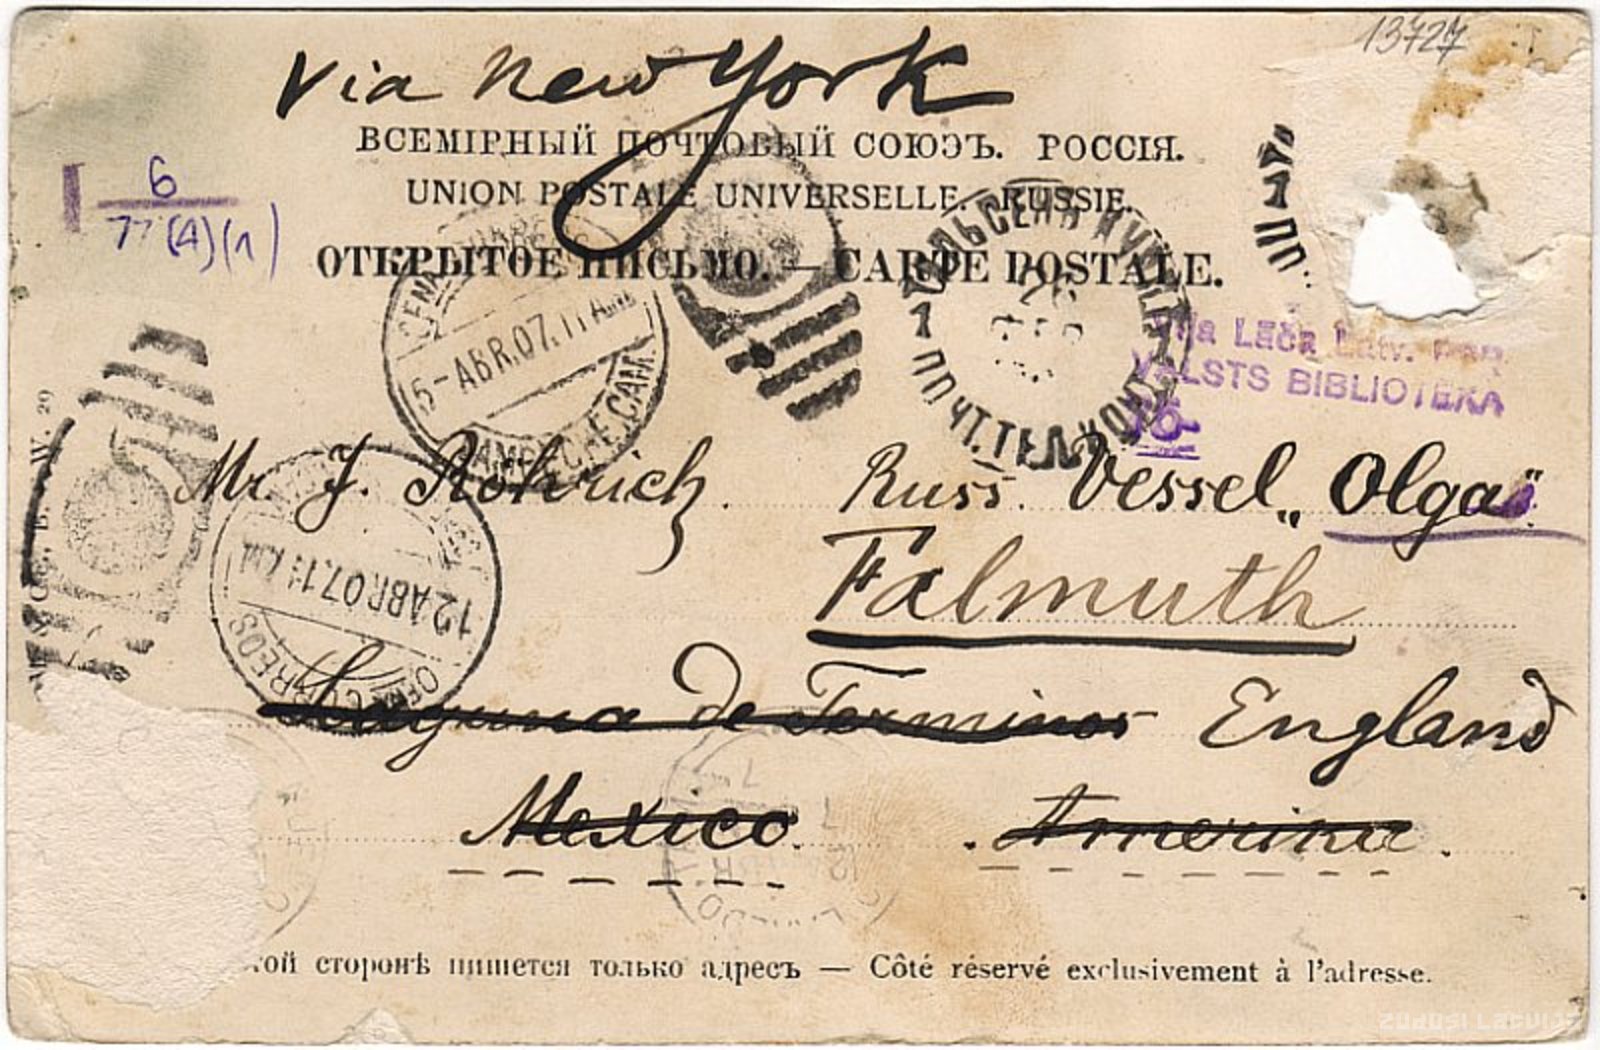 13727
Via New York
ВСЕМІРНЫЙ ПОЧТОВЫЙ СОЮЗЪ. РОССІЯ.
UNION POSTALE UNIVERSELLE. RUSSIE.
6
77(4)(1)
ОТКРЫТОЕ ПИСЬМО. — CARTE POSTALE.
5-ABR.07.11 AM
CAMPECHE, CAM.
ПОЧТ. ТЕЛ.
Viļa Lāča Latv. PSR
VALSTS BIBLIOTEKA
Mr J. Röhrich. Russ. Vessel „Olga".
Falmuth
12 ABR.07.
CORREOS
Laguna de Terminos England
Mexico. Amerika.
той сторонѣ пишется только адресъ — Côté réservé exclusivement à l'adresse.
ZUDUSI LATVIJA